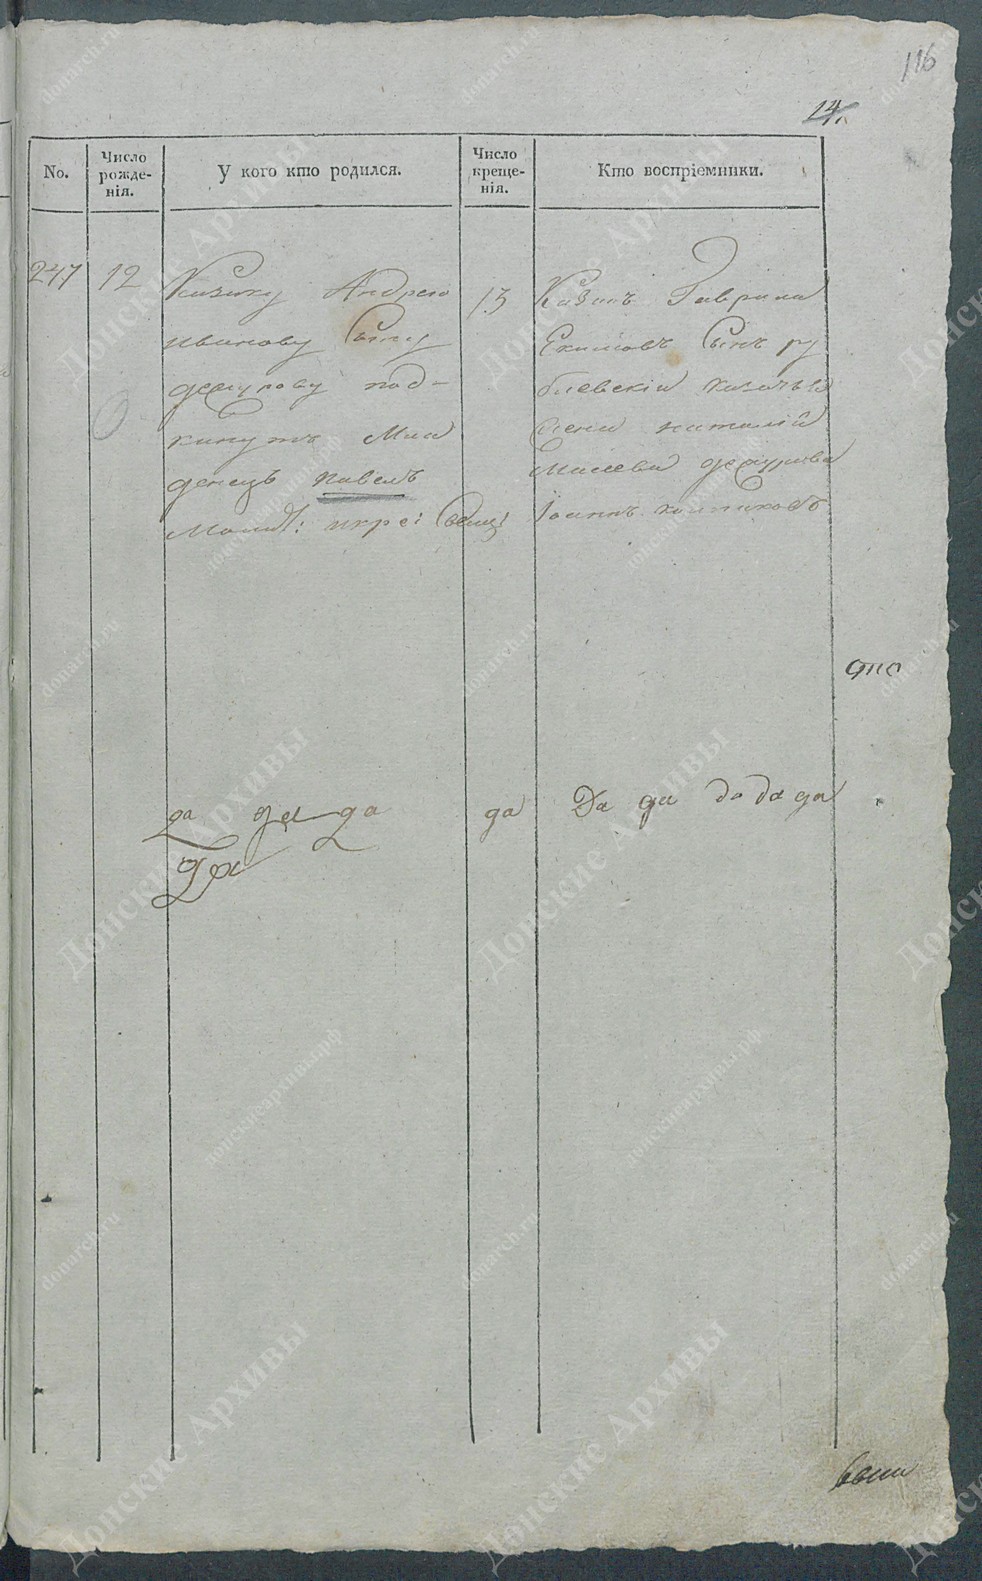 116
14.
No.
Число рожде-нія.
У кого кто родился.
Число креще-нія.
Кто воспріемники.
247
12
Казаку Андрею
иванову Сыну
дежурову под-
кинутъ Мла
денецъ павелъ
Молит: икре: Свящ:
13
Казакъ Гаврила
Екимовъ Сынъ ру
баевскій казачья
жена наталія
дежурова
Іоаннъ
сто
да да да
да
Да да да да да
Да
донскиеархивы.рф
donarch.ru
Донские Архивы